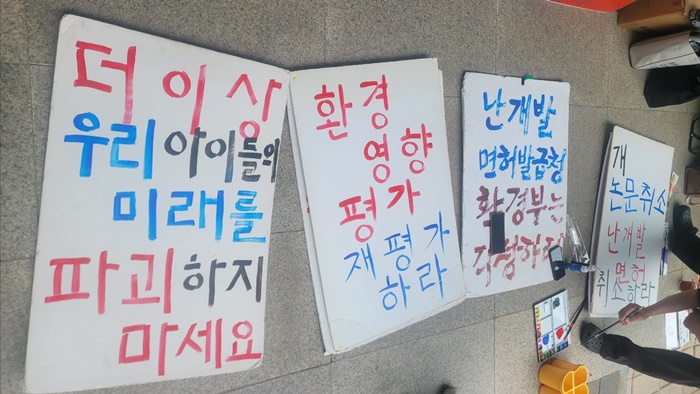 더 이상
우리 아이들의
미래를
파괴하지
마세요
환경
영향
평가
재평가
하라
난개발
면허발급청
환경부는
각성하라
개
논문취소
난개발
면허
취소하라